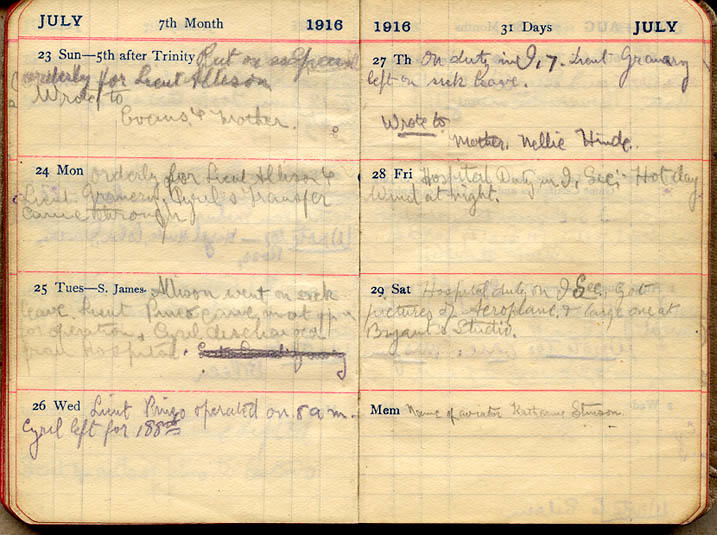 JULY 7th Month 1916
23 Sun—5th after Trinity Put on as Special
orderly for Lieut Allison
Wrote to
Evans & Mother.
24 Mon orderly for Lieut Allison &
Lieut Granery, Cyril's Transfer
came through
25 Tues—S. James. Allison went on sick
leave, Lieut Pingo came in at 4 pm
for operation, Cyril discharged
from Hospital.
26 Wed Lieut Pingo operated on 8 a.m.
Cyril left for 188th
1916 31 Days JULY
27 Th On duty in I, 7. Lieut Granery
left on sick leave.
Wrote to
Mother, Nellie Hinde.
28 Fri Hospital Duty in I, Sec; Hot day
Wind at night.
29 Sat Hospital duty on I Sec, Got
pictures of Aeroplane, & large one at
Bryant's Studio.
Mem Name of aviator Katharine Stinson